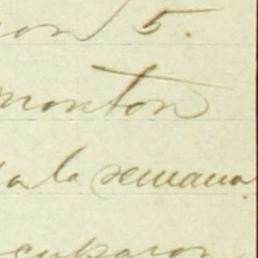 5.
monton
a la semana.
cuparon